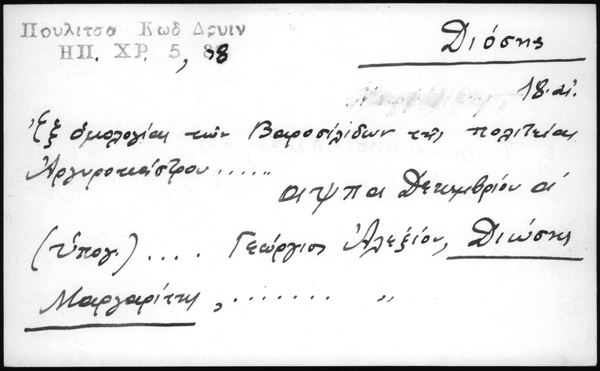 Πουλιτσα Κωδ Δρυιν
ΗΠ. ΧΡ. 5, 88
Διόσης
18. αἰ.
Ἐξ ὁμολογίας τῶν Βαροσιλίδων τῆς πολιτείας
Ἀργυροκάστρου ......
αψπα Δεκεμβρίου α΄
(ὑπογ.) .... Γεώργιος Ἀλεξίου, Διώσης
Μαργαρίτης, ....... „